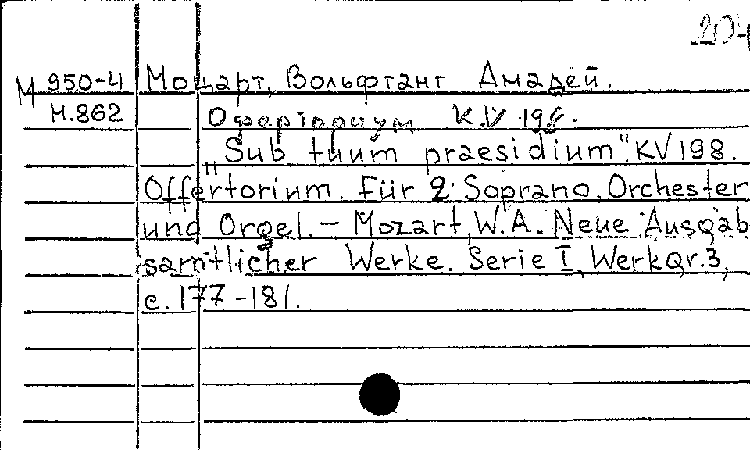 204
М 950-4 Моцарт, Вольфганг Амадей.
М.862 Оферторіум K.V 198.
„Sub tuum praesidium“, KV 198.
Offertorium. Für 2 Soprano, Orchester
und Orgel. – Mozart, W.A. Neue Ausgab
samtlicher Werke. Serie I, Werkgr. 3,
с. 177-181.